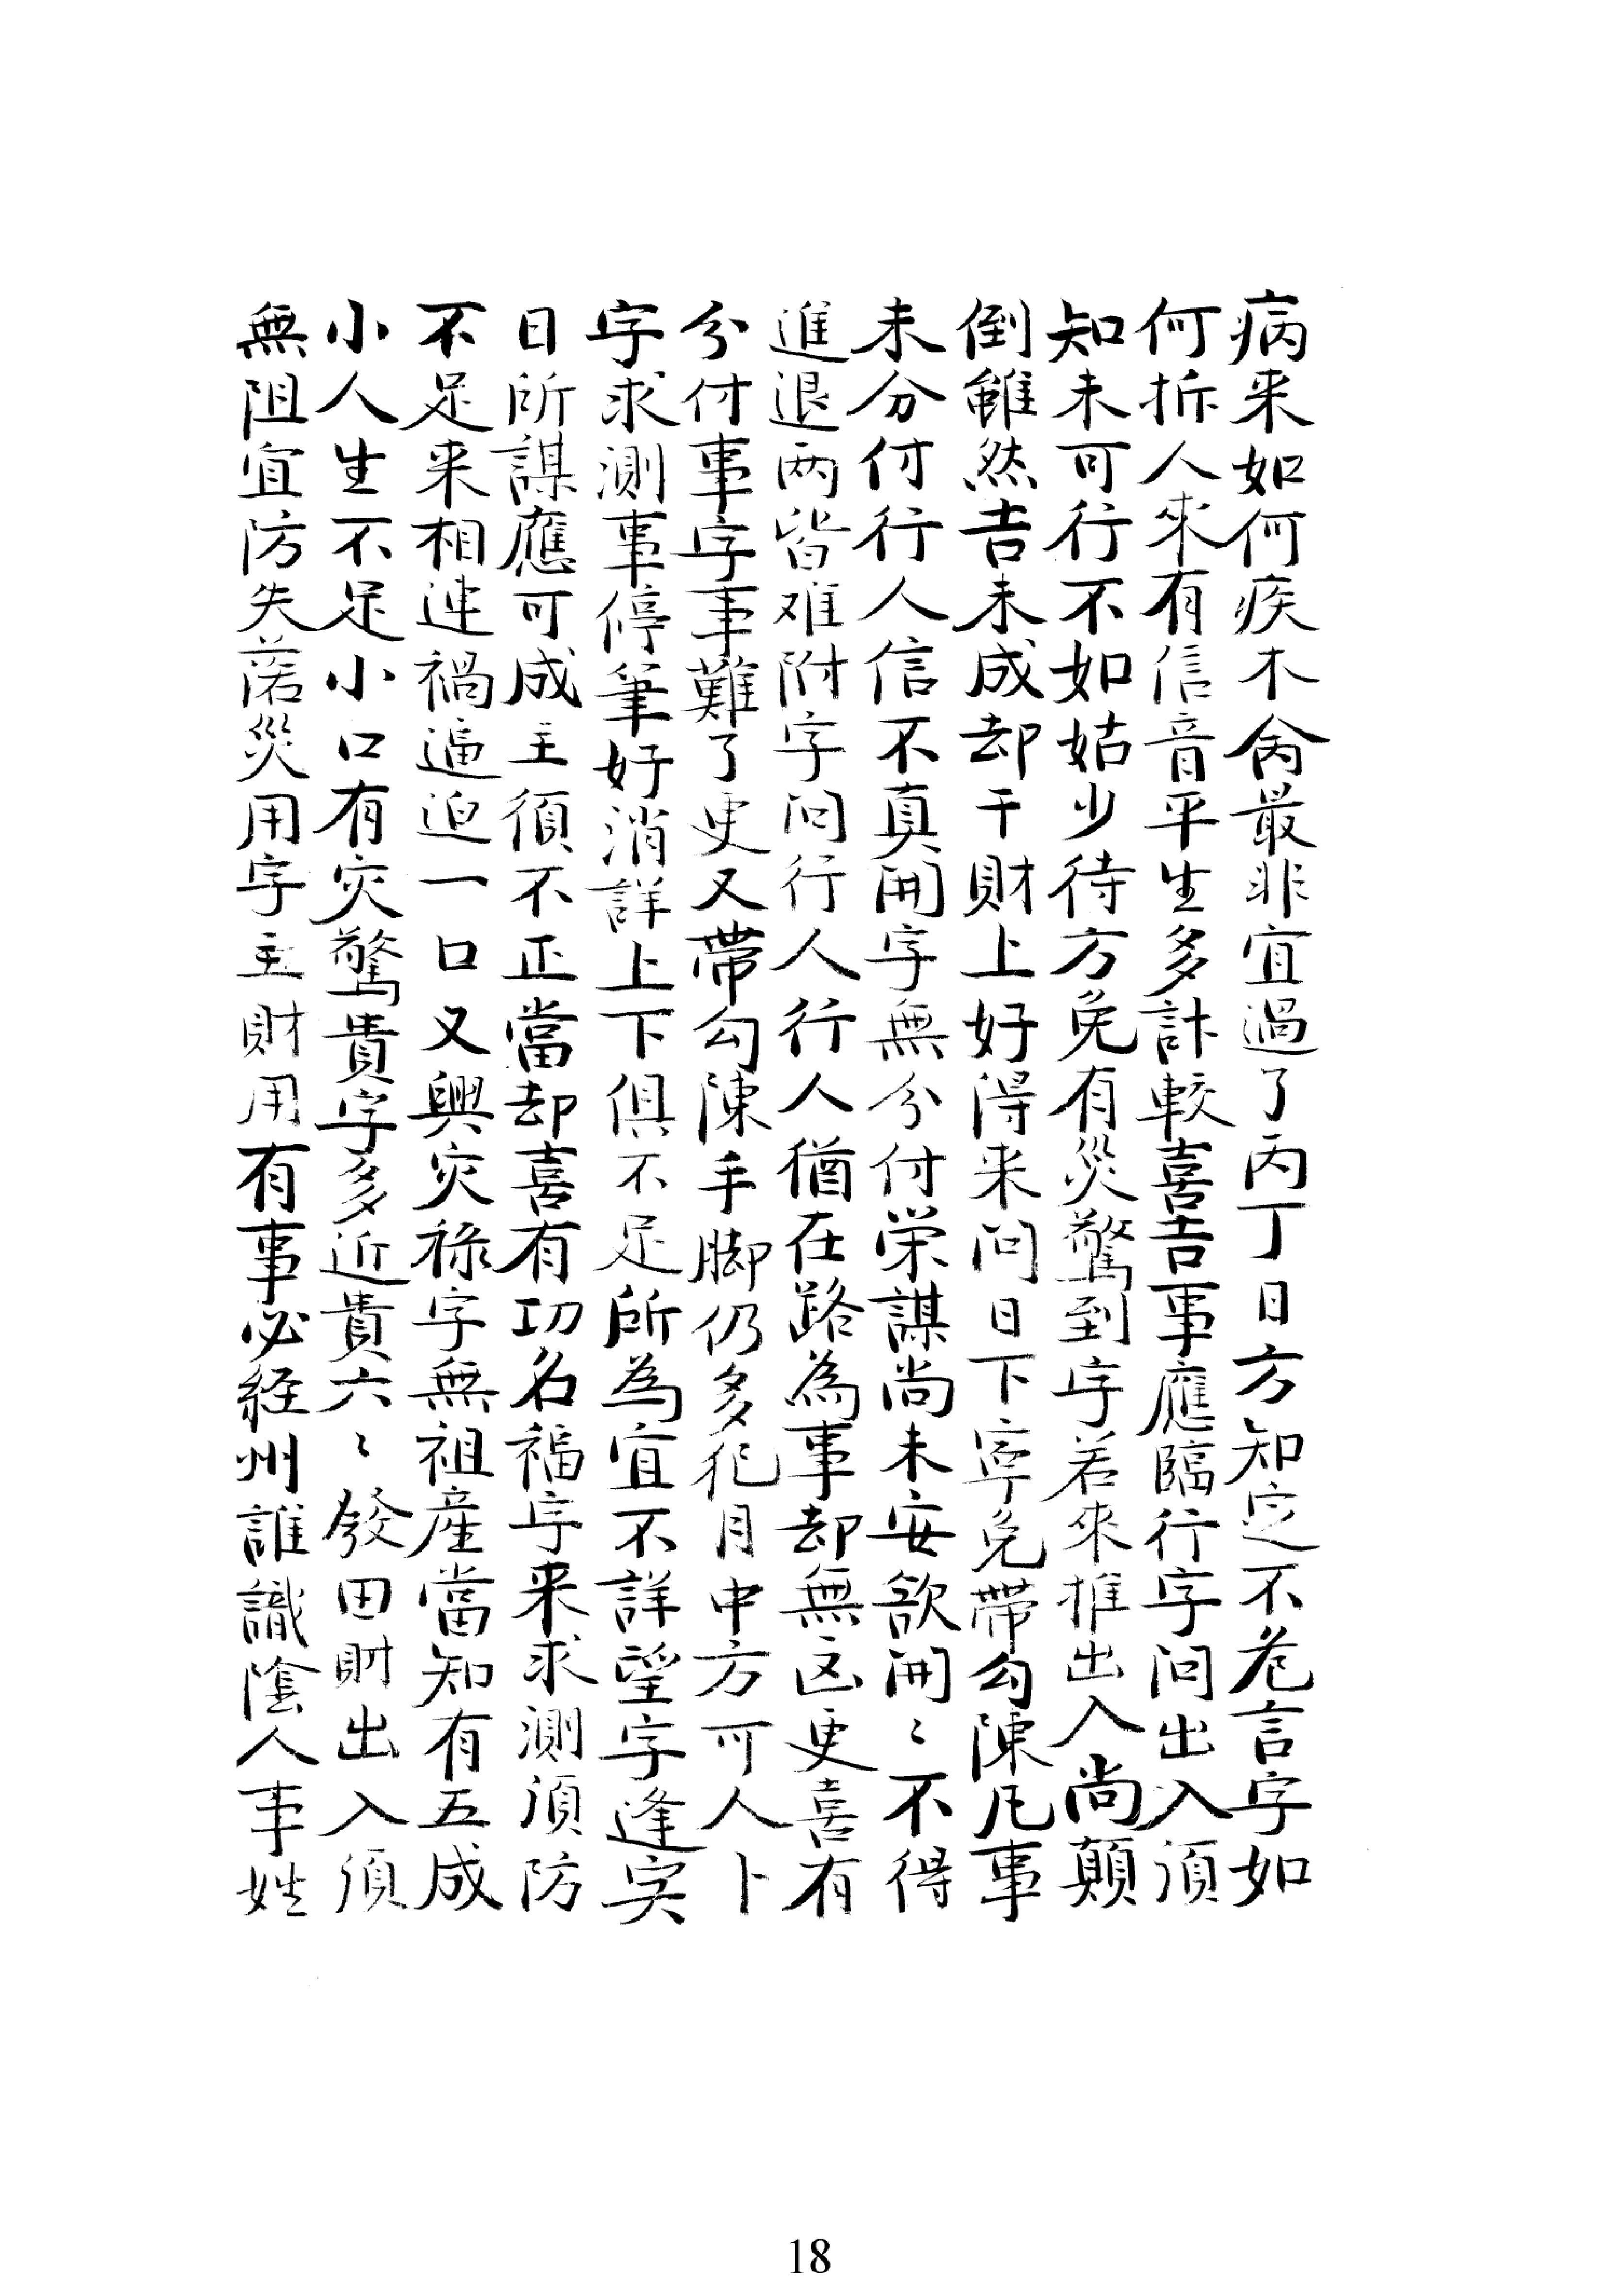 病来如何疾木禽最非宜過了丙丁日方知定不危言字如
何拆人來有信音平生多計較喜吉事應臨行字问出入須
知未可行不如姑少待方免有災驚到字若來推出入尚顛
倒雖然吉未成却干財上好得来问日下寧免帶勾陳凡事
未分付行人信不真開字無分付荣謀尚未安欲開〻不得
進退两皆难附字问行人行人猶在路為事却無凶更喜有
分付事字事難了更又帶勾陳手脚仍多犯月中方可人卜
字求測事停筆好消詳上下俱不足所為宜不詳望字逢寅
日所謀應可成主須不正當却喜有功名福字来求測須防
不足来相連禍逼迫一口又興灾禄字無祖産當知有五成
小人生不足小口有灾驚貴字多近貴六〻發田財出入須
無阻宜防失落災用字主財用有事必経州誰識陰人事姓
18